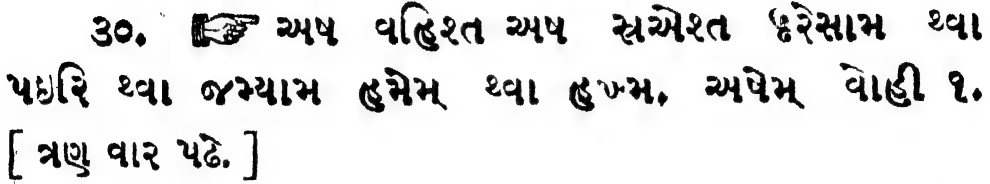 ૩૦. ☞ અષ વહિશ્ત અષ સ્રએશ્ત દ્દરેસામ થ્વા
પઇરિ થ્વા જમ્યામ હમેમ્ થ્વા હખ્મ. અષેમ્ વોહી ૧.
[ ત્રણ વાર પઢે. ]